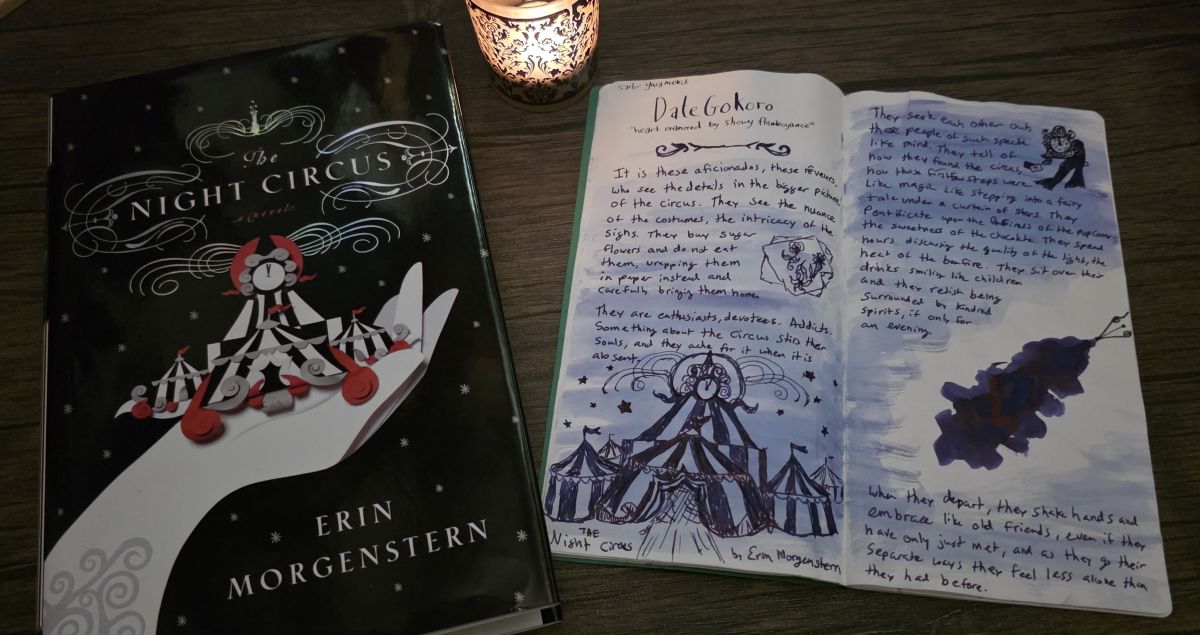 The
NIGHT CIRCUS
a novel
ERIN
MORGENSTERN
Sailor
Date Gokoro
"heart enamored by showy flamboyance"
It is these aficionados, these reveurs
who see the details in the bigger picture
of the circus. They see the nuance
of the costumes, the intricacy of the
signs. They buy sugar
flowers and do not eat
them, wrapping them
in paper instead and
carefully bringing them home.
They are enthusiasts, devotees. Addicts.
Something about the Circus stirs their
Souls, and they ache for it when it is
absent.
THE
Night Circus
by Erin Morgenstern
They seek each other out,
these people of such specific
like mind. They tell of
how they found the circus,
how those first few steps were
like magic. Like stepping into a fairy
tale under a curtain of stars. They
Pontificate upon the fluffiness of the popcorn,
the sweetness of the chocolate. They spend
hours discussing the quality of the light, the
heat of the bonfire. They sit over their
drinks smiling like children
and they relish being
Surrounded by kindred
spirits, if only for
an evening.
When they depart, they shake hands and
embrace like old friends, even if they
have only just met, and as they go their
Separate ways they feel less alone than
they had before.